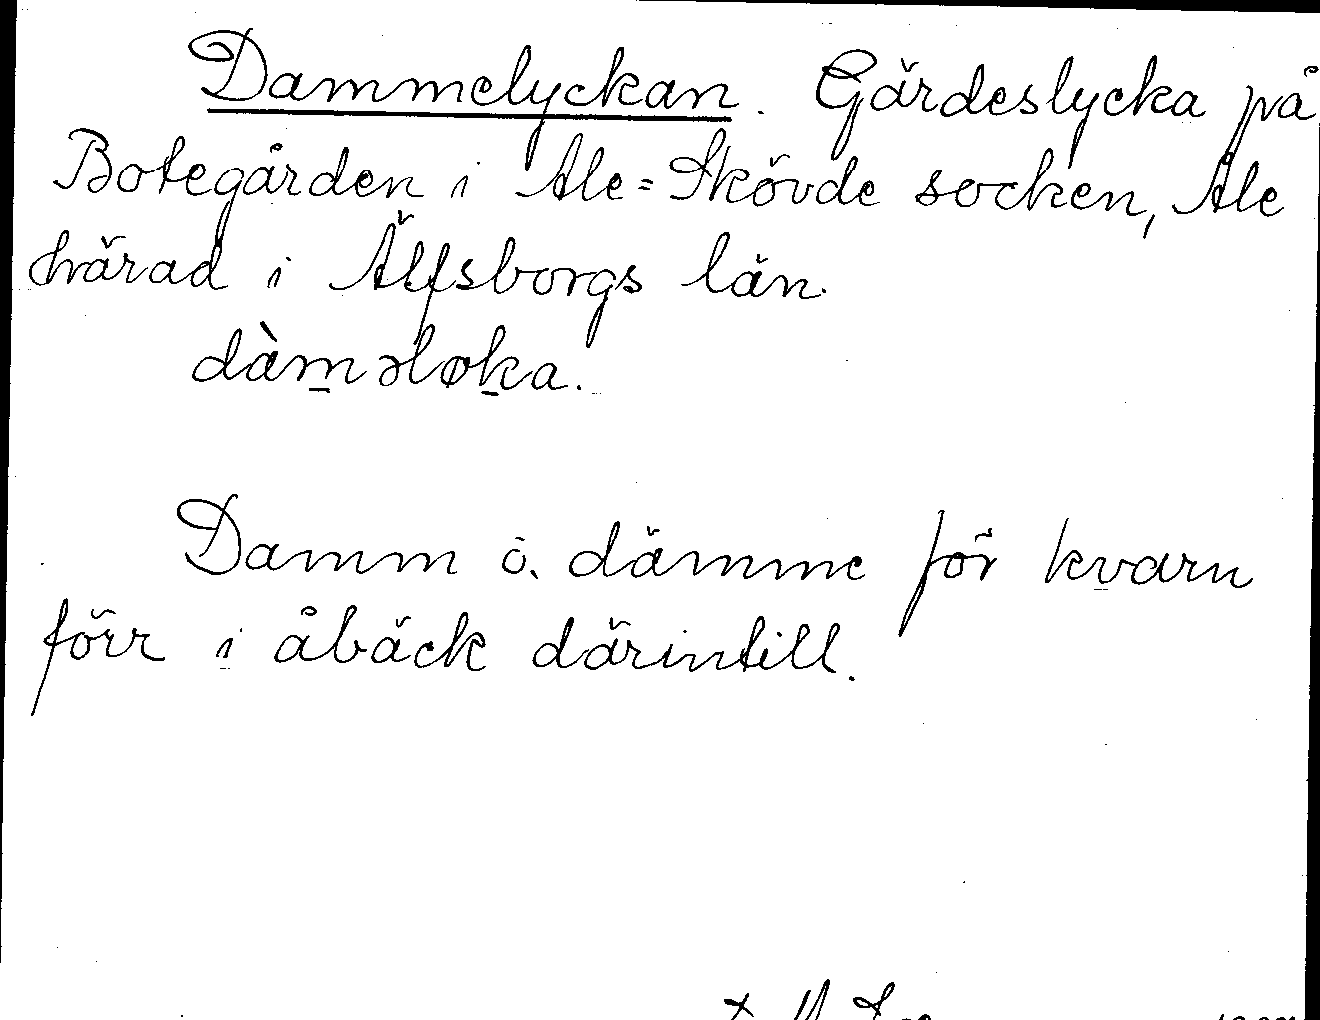 Dammelyckan. Gärdeslycka på
Botegården i Ale=Skövde socken, Ale
härad i Älfsborgs län.
dàm̲əløk̲a.
Damm o. dämme för kvarn
förr i åbäck därintill.